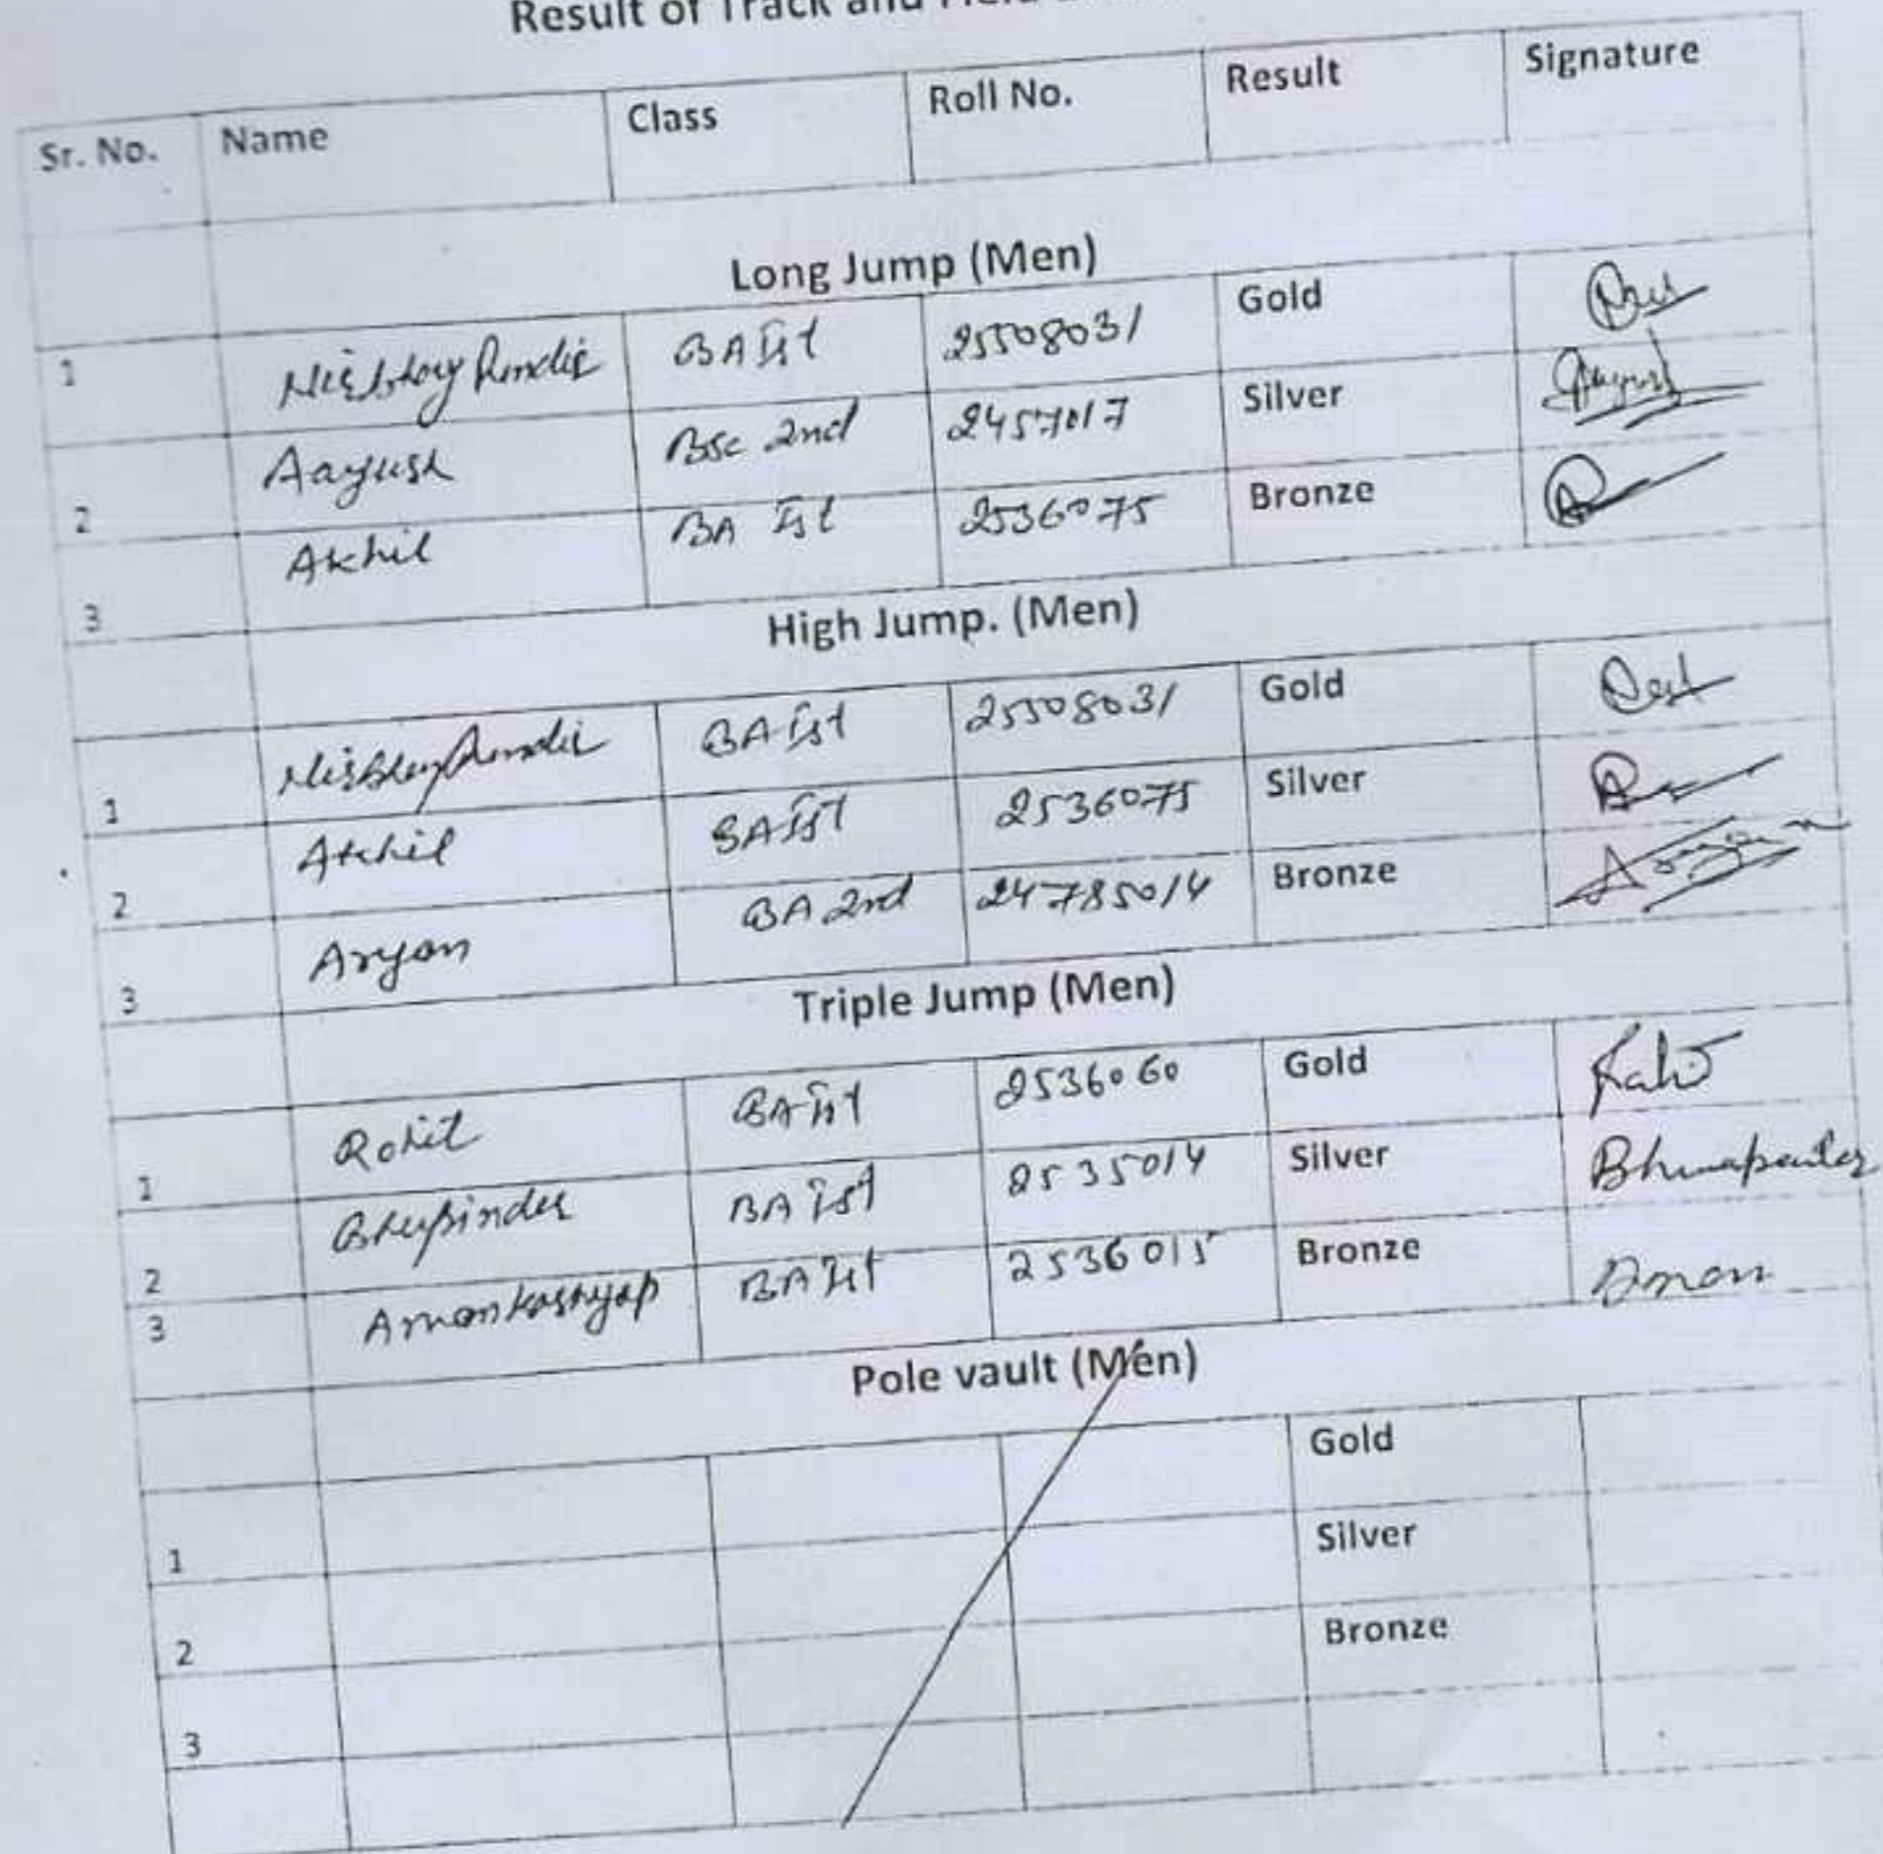 Result of Track and Field
Sr. No. Name Class Roll No. Result Signature
Long Jump (Men)
1 BA Ist 25508031 Gold
2 Aayush Bsc 2nd 2457017 Silver Aayush
3 Akhil BA Ist 2536075 Bronze
High Jump. (Men)
1 BA Ist 25508031 Gold
2 Akhil BA Ist 2536075 Silver
3 Aryan BA 2nd 24785014 Bronze Aryan
Triple Jump (Men)
1 Rohit BA Ist 2536060 Gold
2 Bhupinder BA Ist 2535014 Silver
3 Aman Kashyap BA Ist 2536015 Bronze Aman
Pole vault (Men)
1 Gold
2 Silver
3 Bronze